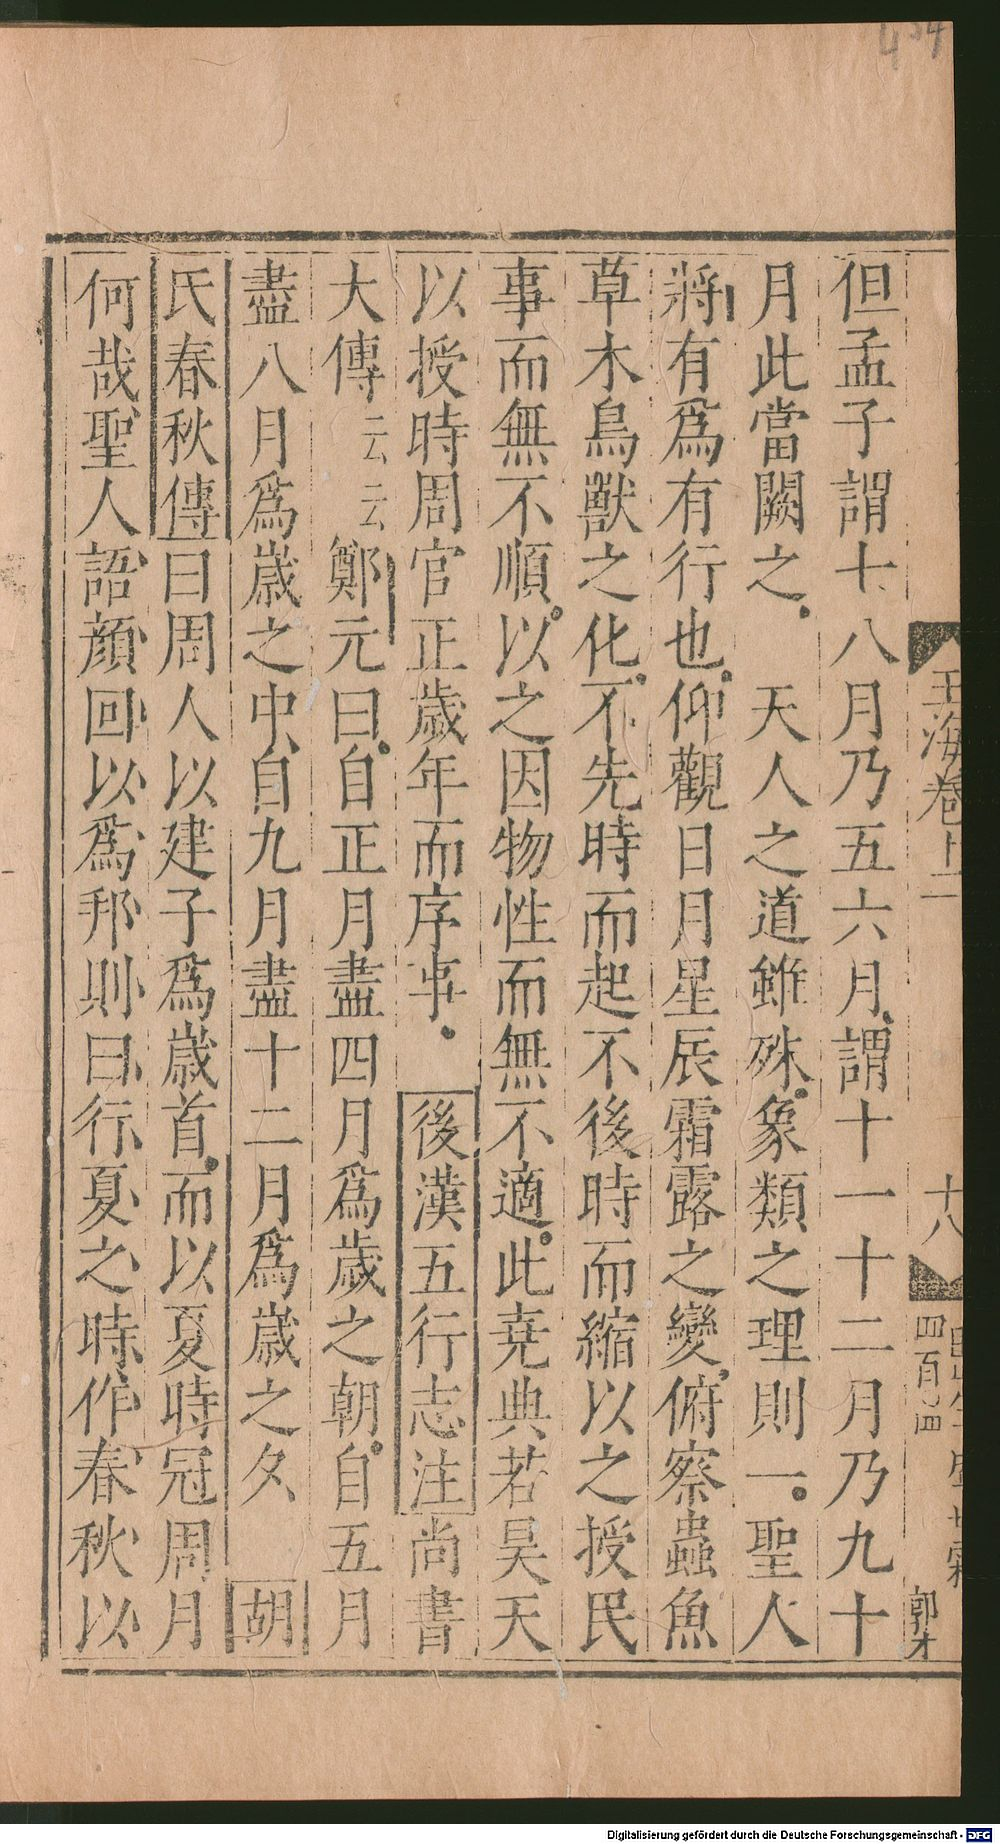 但孟子謂七八月乃五六月謂十一十二月乃九十
月此當闕之 天人之道雖殊象類之理則一聖人
將有爲有行也仰觀日月星辰霜露之變俯察蟲魚
草木鳥獸之化不先時而起不後時而縮以之授民
事而無不順以之因物性而無不適此堯典若昊天
以授時周官正歲年而序事 後漢五行志注尚書
大傳云云鄭元曰自正月盡四月爲歲之朝自五月
盡八月爲歲之中自九月盡十二月爲歲之夕 胡
氏春秋傳曰周人以建子爲歲首而以夏時冠周月
何哉聖人語顔回以爲邦則曰行夏之時作春秋以
玉海卷十二
十八
四百四
郭才
434
Digitalisierung gefördert durch die Deutsche Forschungsgemeinschaft - DFG